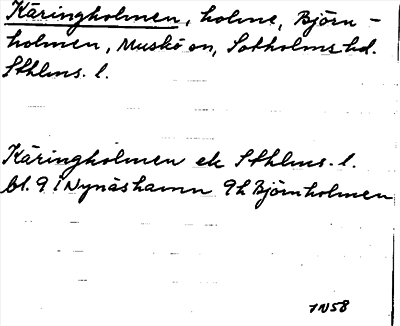 Käringholmen, holme, Björn-
holmen, Muskö sn, Sotholms hd.
Sthlms. l.
Käringholmen ek Sthlms. l.
bl. 9 i Nynäshamn 9h Björnholmen
7N58